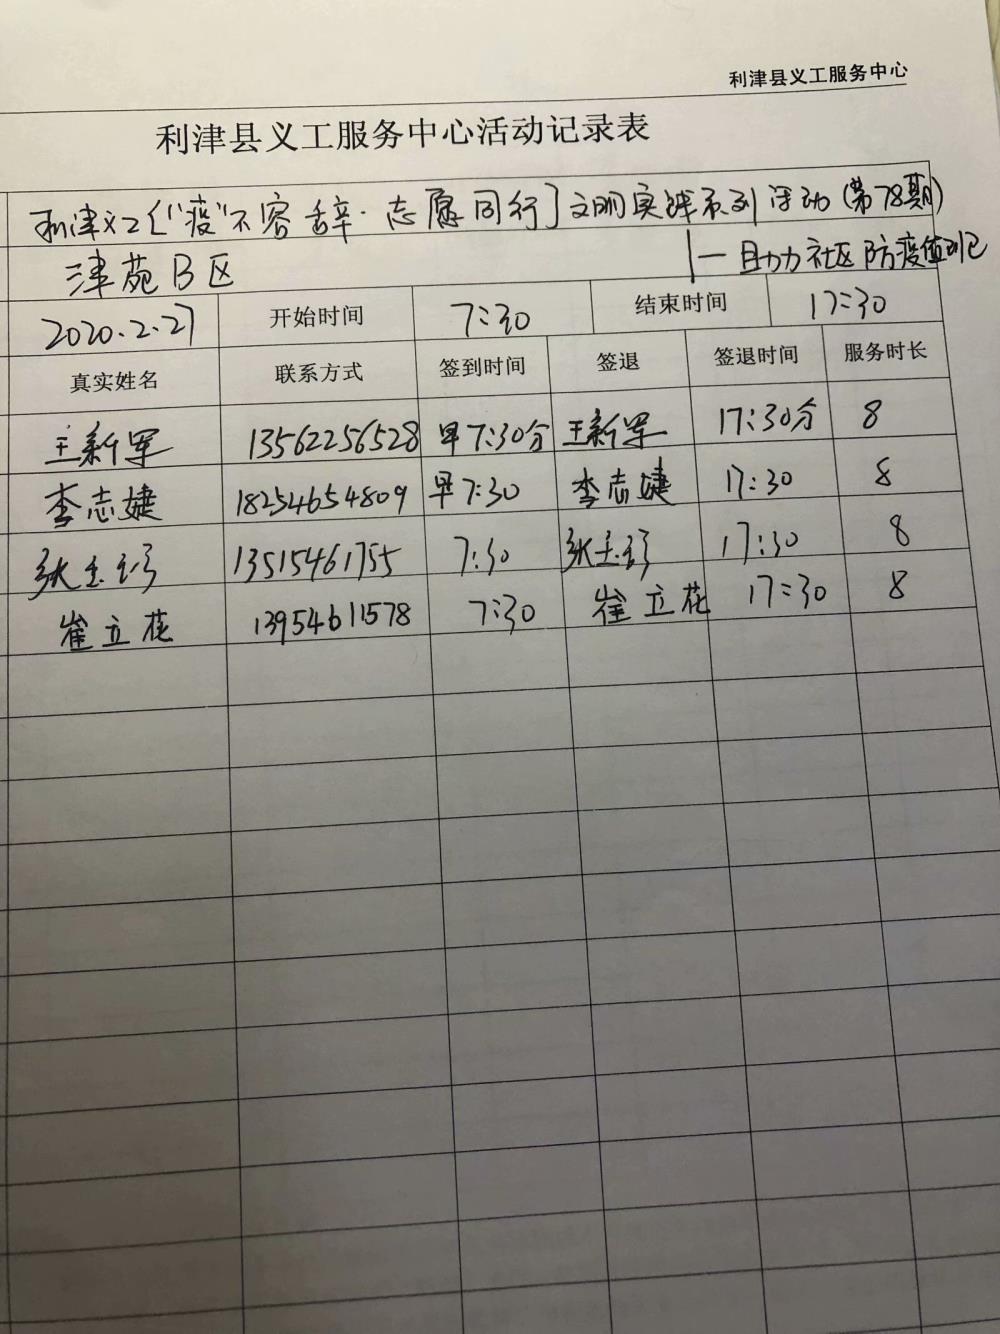 利津县义工服务中心
利津县义工服务中心活动记录表
利津义工〔"疫"不容辞·志愿同行〕文明实践系列活动(第78期)
津苑B区 |—助力社区防疫值班
2020.2.27 开始时间 7:30 结束时间 17:30
真实姓名 联系方式 签到时间 签退 签退时间 服务时长
王新军 13562256528 早7:30分 王新军 17:30分 8
李志婕 18254654809 早7:30 李志婕 17:30 8
张玉 13515461755 7:30 张玉 17:30 8
崔立花 13954611578 7:30 崔立花 17:30 8